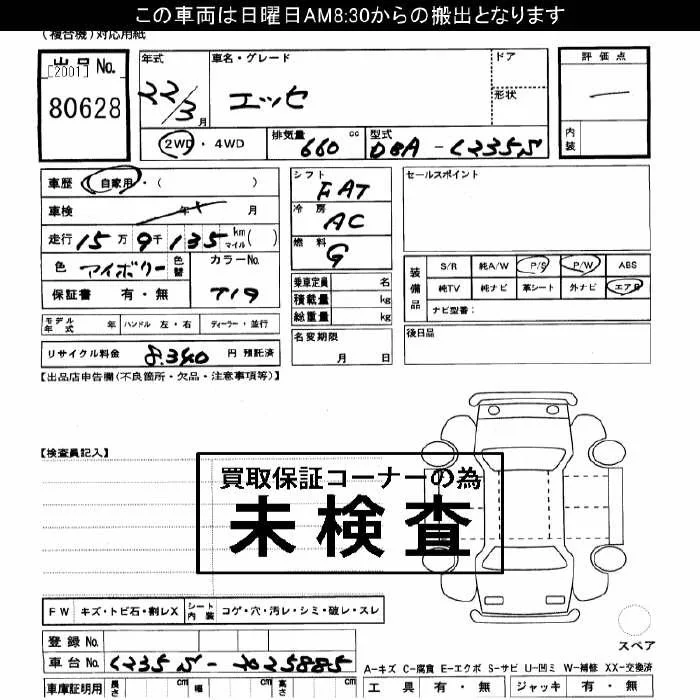 この車両は日曜日AM8:30からの搬出となります
(複合機)対応用紙
出品No. [2001] 80628
年式 22/3月
車名・グレード エッセ
ドア
形状
評価点 一
内装
2WD・4WD
排気量 660 cc
型式 DBA-L235S
車歴 自家用・( )
車検 年 月
走行 15万9千135 km マイル( )
色 アイボリー 色替
カラーNo. T19
保証書 有・無
シフト FAT
冷房 AC
燃料 G
乗車定員 名
積載量 kg
総重量 kg
セールスポイント
装備品
S/R 純A/W P/S P/W ABS
純TV 純ナビ 革シート 外ナビ エアB
ナビ型番:
モデル年式 年 ハンドル 左・右 ディーラー・並行
リサイクル料金 8,340 円 預託済
名変期限 月 日
後日品
【出品店申告欄(不良箇所・欠品・注意事項等)】
【検査員記入】
買取保証コーナーの為
未検査
FW キズ・トビ石・割レX シート内装 コゲ・穴・汚レ・シミ・破レ・スレ
スペア
登録No.
車台No. L235S-2025885
A-キズ C-腐食 E-エクボ S-サビ U-凹ミ W-補修 XX-交換済
車庫証明用 長さ cm 幅 cm 高さ cm
工具 有・無 ジャッキ 有・無